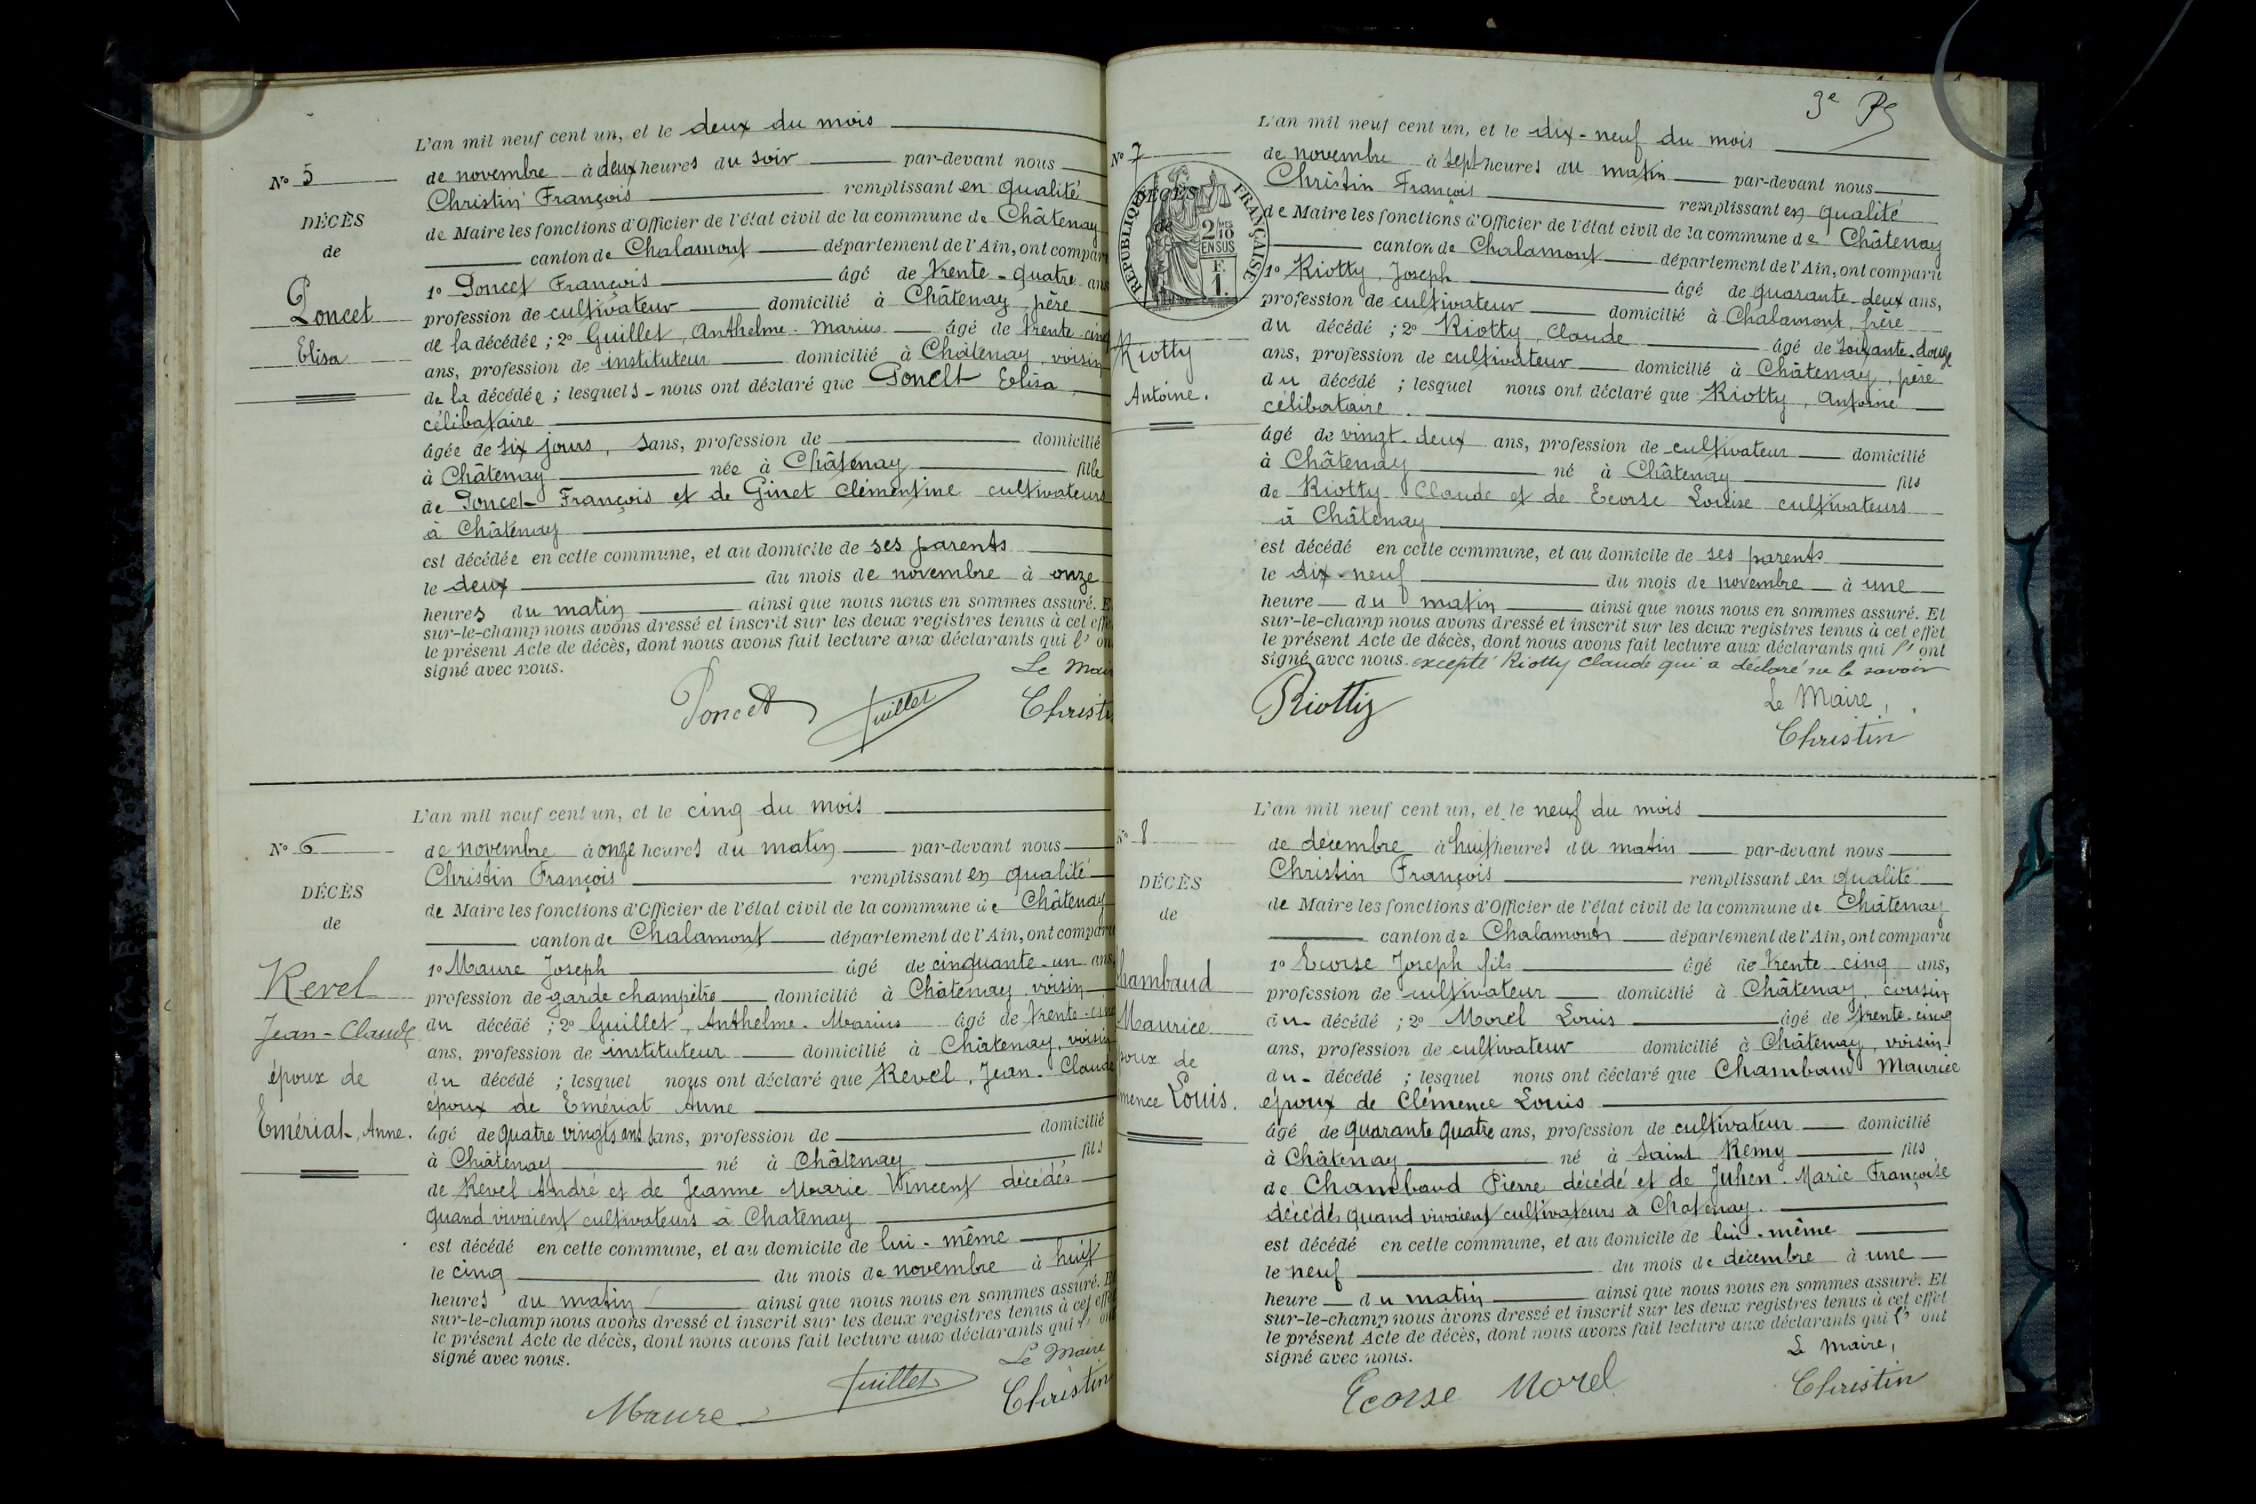 L'an mil neuf cent un, et le deux du mois
No 5
de novembre à deux heures du soir par-devant nous
Christin François remplissant en qualité
DÉCÈS
de Maire les fonctions d'Officier de l'état civil de la commune de Châtenay
de
canton de Chalamont département de l'Ain, ont comparu
1o Poncet François âgé de trente-quatre ans
Poncet
profession de cultivateur domicilié à Châtenay, père
de la décédée ; 2o Guillet, Anthelme-Marius âgé de trente-cinq
Elisa
ans, profession de instituteur domicilié à Châtenay, voisin
de la décédée ; lesquels nous ont déclaré que Poncet Elisa
célibataire
âgée de six jours, sans, profession de domicilié
à Châtenay née à Châtenay fille
de Poncet François et de Ginet Clémentine cultivateurs
à Châtenay
est décédée en cette commune, et au domicile de ses parents
le deux du mois de novembre à onze
heures du matin ainsi que nous nous en sommes assuré. E
sur-le-champ nous avons dressé et inscrit sur les deux registres tenus à cet effe
le présent Acte de décès, dont nous avons fait lecture aux déclarants qui l' on
signé avec nous.
Le Mair
Poncet Guillet Christi
L'an mil neuf cent un, et le cinq du mois
No 6
de novembre à onze heures du matin par-devant nous
Christin François remplissant en qualité
DÉCÈS
de Maire les fonctions d'Officier de l'état civil de la commune de Châtenay
de
canton de Chalamont département de l'Ain, ont comparu
1o Maure Joseph âgé de cinquante-un ans
Revel
profession de garde champêtre domicilié à Châtenay voisin
Jean-Claude
du décédé ; 2o Guillet, Anthelme-Marius âgé de trente-cinq
ans, profession de instituteur domicilié à Châtenay, voisin
époux de
du décédé ; lesquel nous ont déclaré que Revel, Jean-Claude
époux de Emériat Anne
Emériat, Anne.
âgé de quatre vingts ans, profession de domicilié
à Châtenay né à Châtenay fils
de Revel André et de Jeanne Marie Vincent décédés
quand vivaient cultivateurs à Chatenay
est décédé en cette commune, et au domicile de lui-même
le cinq du mois de novembre à huit
heures du matin ainsi que nous nous en sommes assuré. E
sur-le-champ nous avons dressé et inscrit sur les deux registres tenus à cet effe
le présent Acte de décès, dont nous avons fait lecture aux déclarants qui l' ont
signé avec nous.
Le Maire
Maure Guillet Christin
3e
L'an mil neuf cent un, et le dix-neuf du mois
No 7
de novembre à sept heures du matin par-devant nous
Christin François remplissant en qualité
DÉCÈS
de Maire les fonctions d'Officier de l'état civil de la commune de Châtenay
de
RÉPUBLIQUE FRANÇAISE
2/10 EN SUS
F. 1.
canton de Chalamont département de l'Ain, ont comparu
1o Riotty, Joseph âgé de quarante-deux ans,
profession de cultivateur domicilié à Chalamont, frère
du décédé ; 2o Riotty, Claude âgé de soixante-douze
Riotty
ans, profession de cultivateur domicilié à Châtenay, père
Antoine.
du décédé ; lesquel nous ont déclaré que Riotty, Antoine
célibataire.
âgé de vingt-deux ans, profession de cultivateur domicilié
à Châtenay né à Châtenay fils
de Riotty Claude et de Ecorse Louise cultivateurs
à Châtenay
est décédé en cette commune, et au domicile de ses parents
le dix-neuf du mois de novembre à une
heure du matin ainsi que nous nous en sommes assuré. Et
sur-le-champ nous avons dressé et inscrit sur les deux registres tenus à cet effet
le présent Acte de décès, dont nous avons fait lecture aux déclarants qui l' ont
signé avec nous. excepté Riotty Claude qui a déclaré ne le savoir
Le Maire,
Riotty Christin
L'an mil neuf cent un, et le neuf du mois
No 8
de décembre à huit heures du matin par-devant nous
Christin François remplissant en qualité
DÉCÈS
de Maire les fonctions d'Officier de l'état civil de la commune de Châtenay
de
canton de Chalamont département de l'Ain, ont comparu
1o Ecorse Joseph fils âgé de trente-cinq ans,
hambaud
profession de cultivateur domicilié à Châtenay, cousin
Maurice
du décédé ; 2o Morel Louis âgé de trente-cinq
ans, profession de cultivateur domicilié à Châtenay, voisin
poux de
du décédé ; lesquel nous ont déclaré que Chambaud Maurice
mence Louis.
époux de Clémence Louis
âgé de quarante quatre ans, profession de cultivateur domicilié
à Châtenay né à Saint Remy fils
de Chambaud Pierre décédé et de Juhen Marie Françoise
décédés quand vivaient cultivateurs à Chatenay.
est décédé en cette commune, et au domicile de lui-même
le neuf du mois de décembre à une
heure du matin ainsi que nous nous en sommes assuré. Et
sur-le-champ nous avons dressé et inscrit sur les deux registres tenus à cet effet
le présent Acte de décès, dont nous avons fait lecture aux déclarants qui l' ont
signé avec nous.
Le Maire,
Ecorse Morel Christin